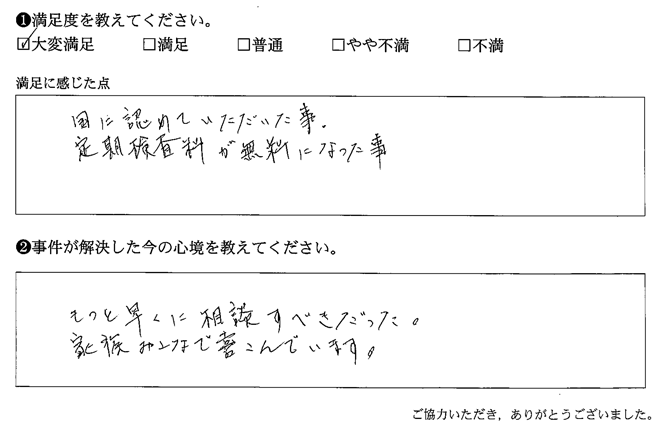 ❶満足度を教えてください。
☑大変満足 □満足 □普通 □やや不満 □不満
満足に感じた点
国に認めていただいた事.
定期検査料が無料になった事
❷事件が解決した今の心境を教えてください。
もっと早くに相談すべきだった。
家族みんなで喜こんでいます。
ご協力いただき，ありがとうございました。